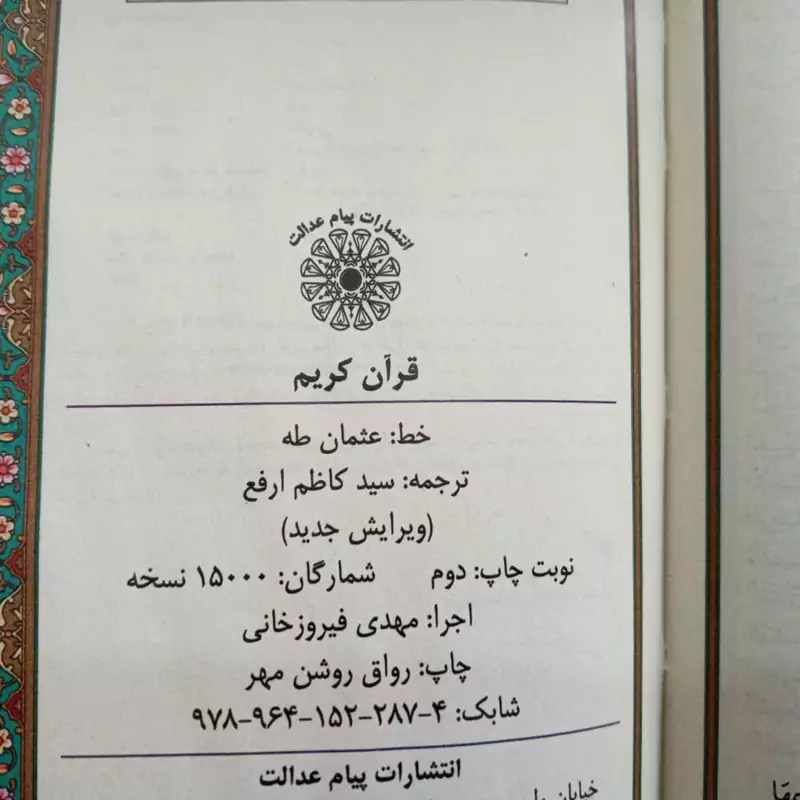 انتشارات پیام عدالت
قرآن کریم
خط: عثمان طه
ترجمه: سید کاظم ارفع
(ویرایش جدید)
نوبت چاپ: دوم شمارگان: ۱۵۰۰۰ نسخه
اجرا: مهدی فیروزخانی
چاپ: رواق روشن مهر
شابک: ۴-۲۸۷-۱۵۲-۹۶۴-۹۷۸
انتشارات پیام عدالت
خیابان